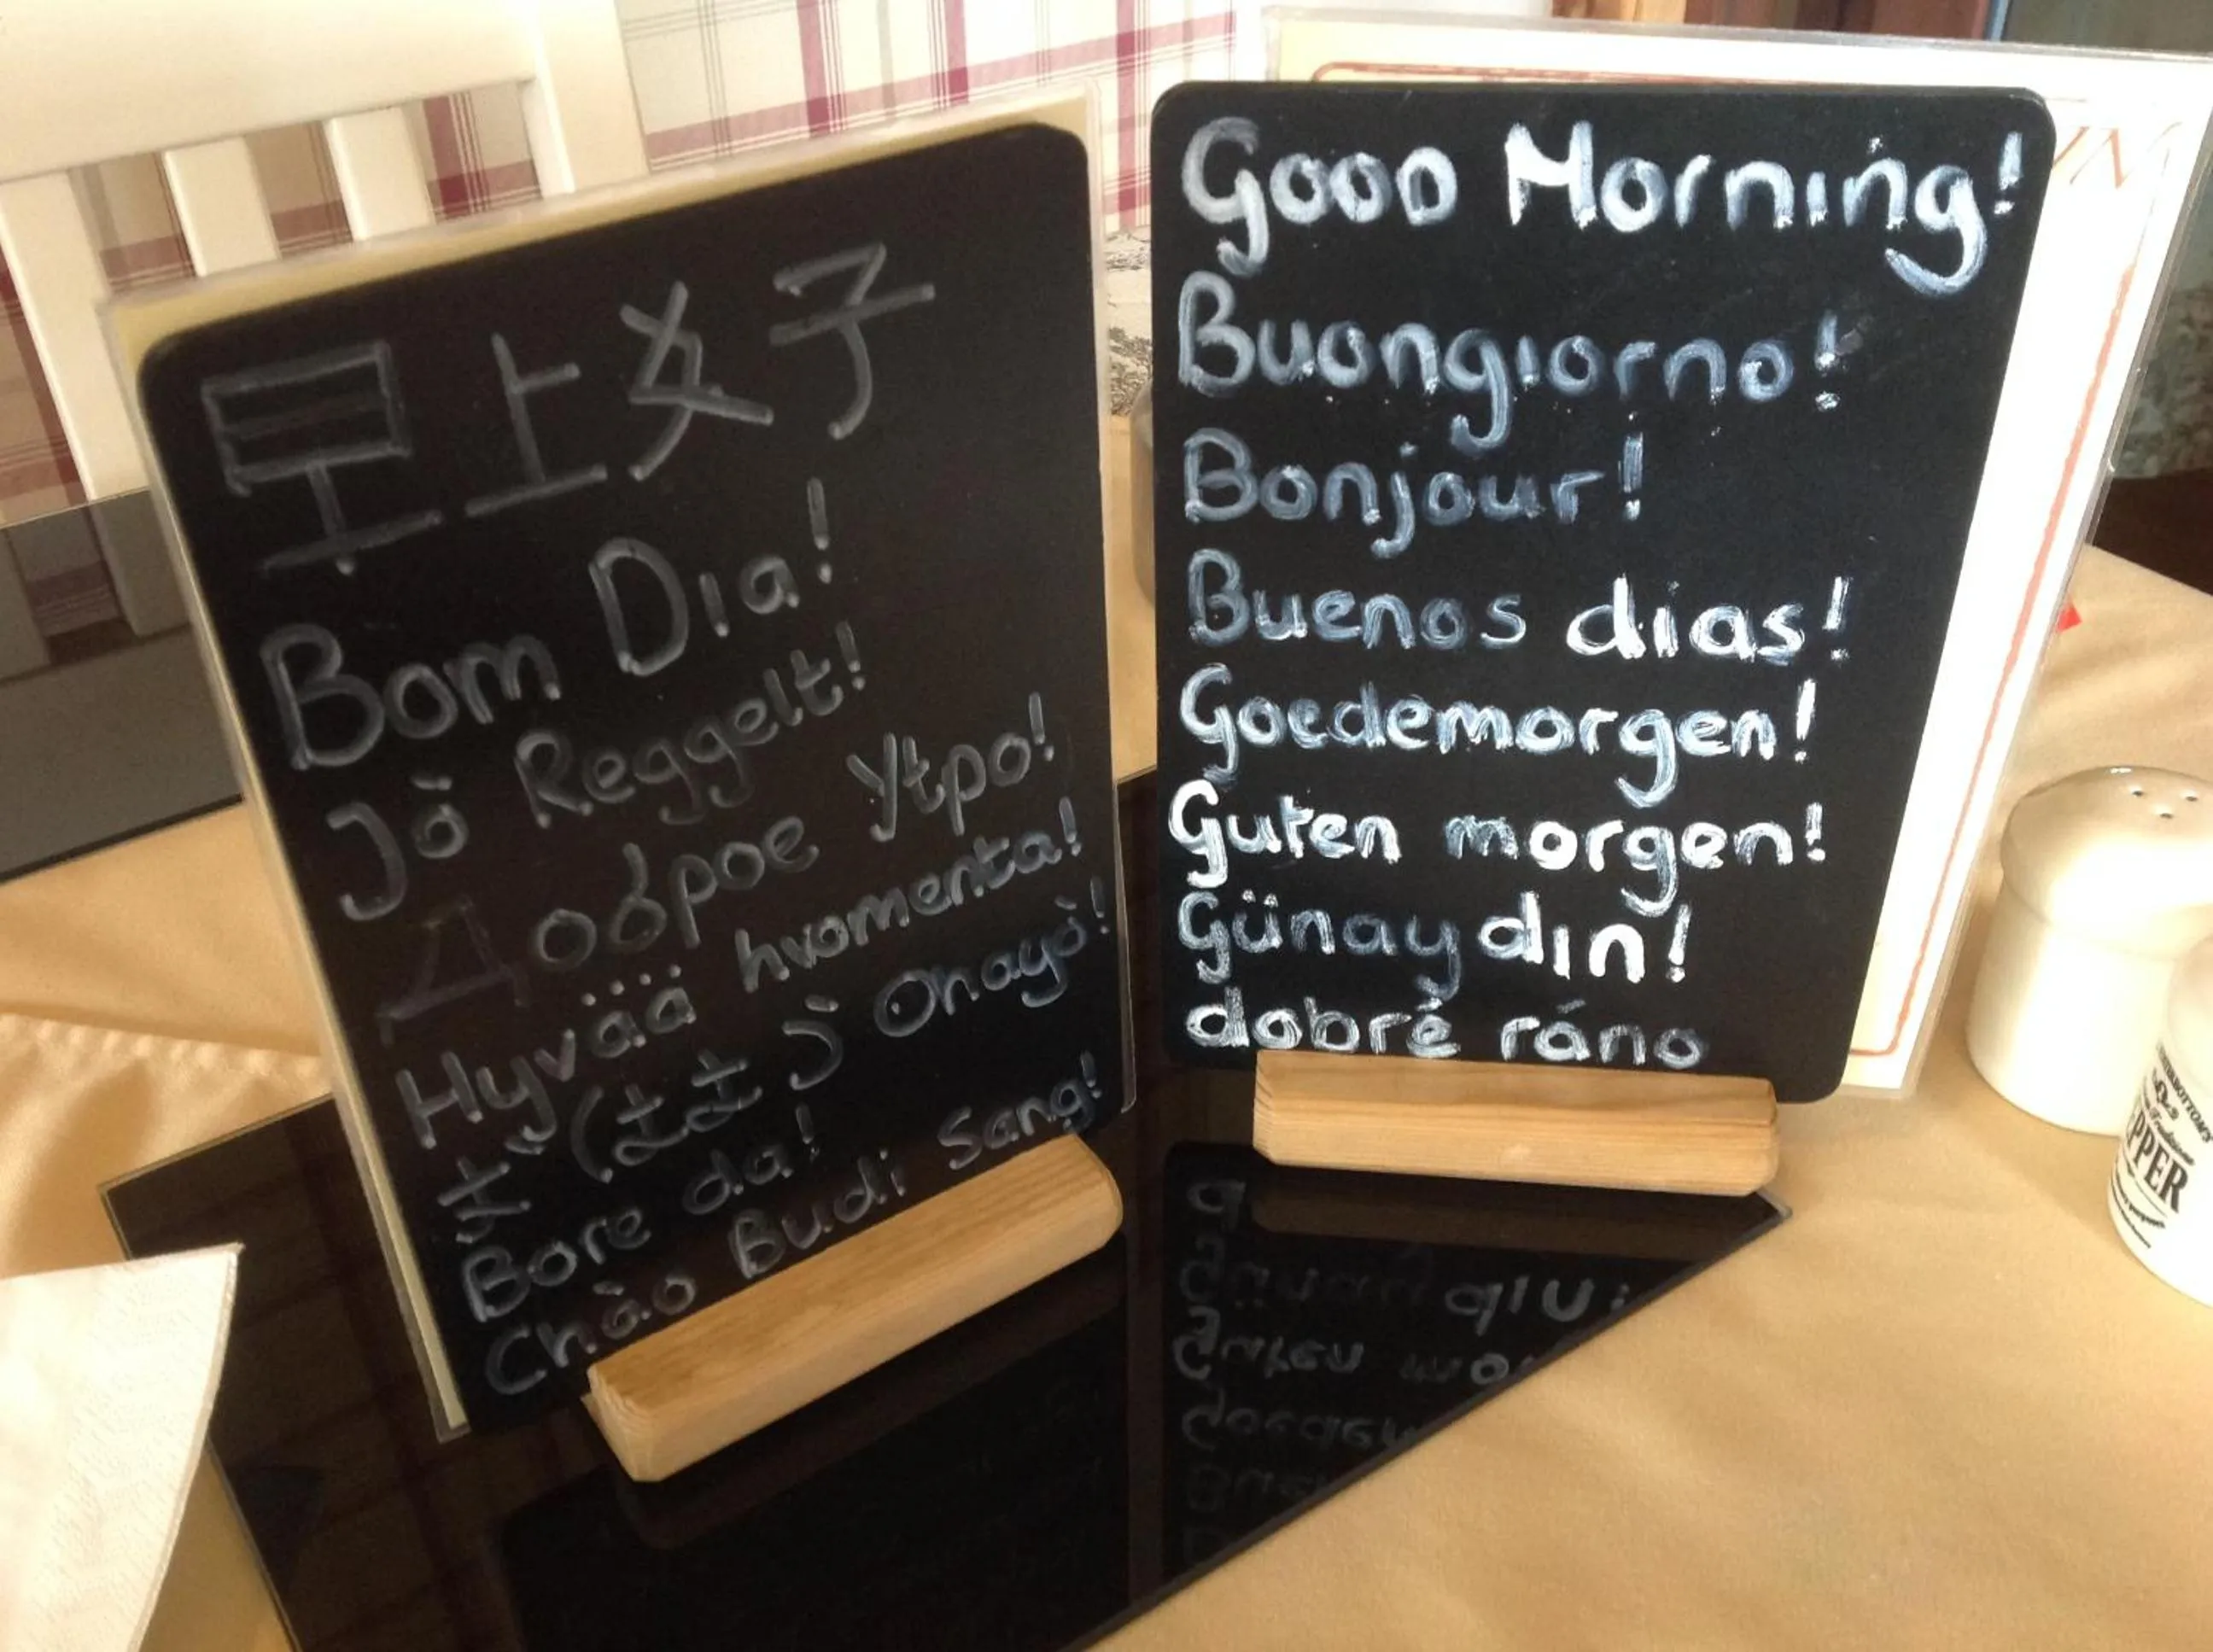 早上女子
Bom Dia!
Jò Reggelt!
Доброе Утро!
Hyvää hvomenta!
おはよう Ohayò!
Bore da!
Chào Budi Sang!
Good Morning!
Buongiorno!
Bonjour!
Buenos dias!
Goedemorgen!
Guten morgen!
Günaydın!
dobré ráno